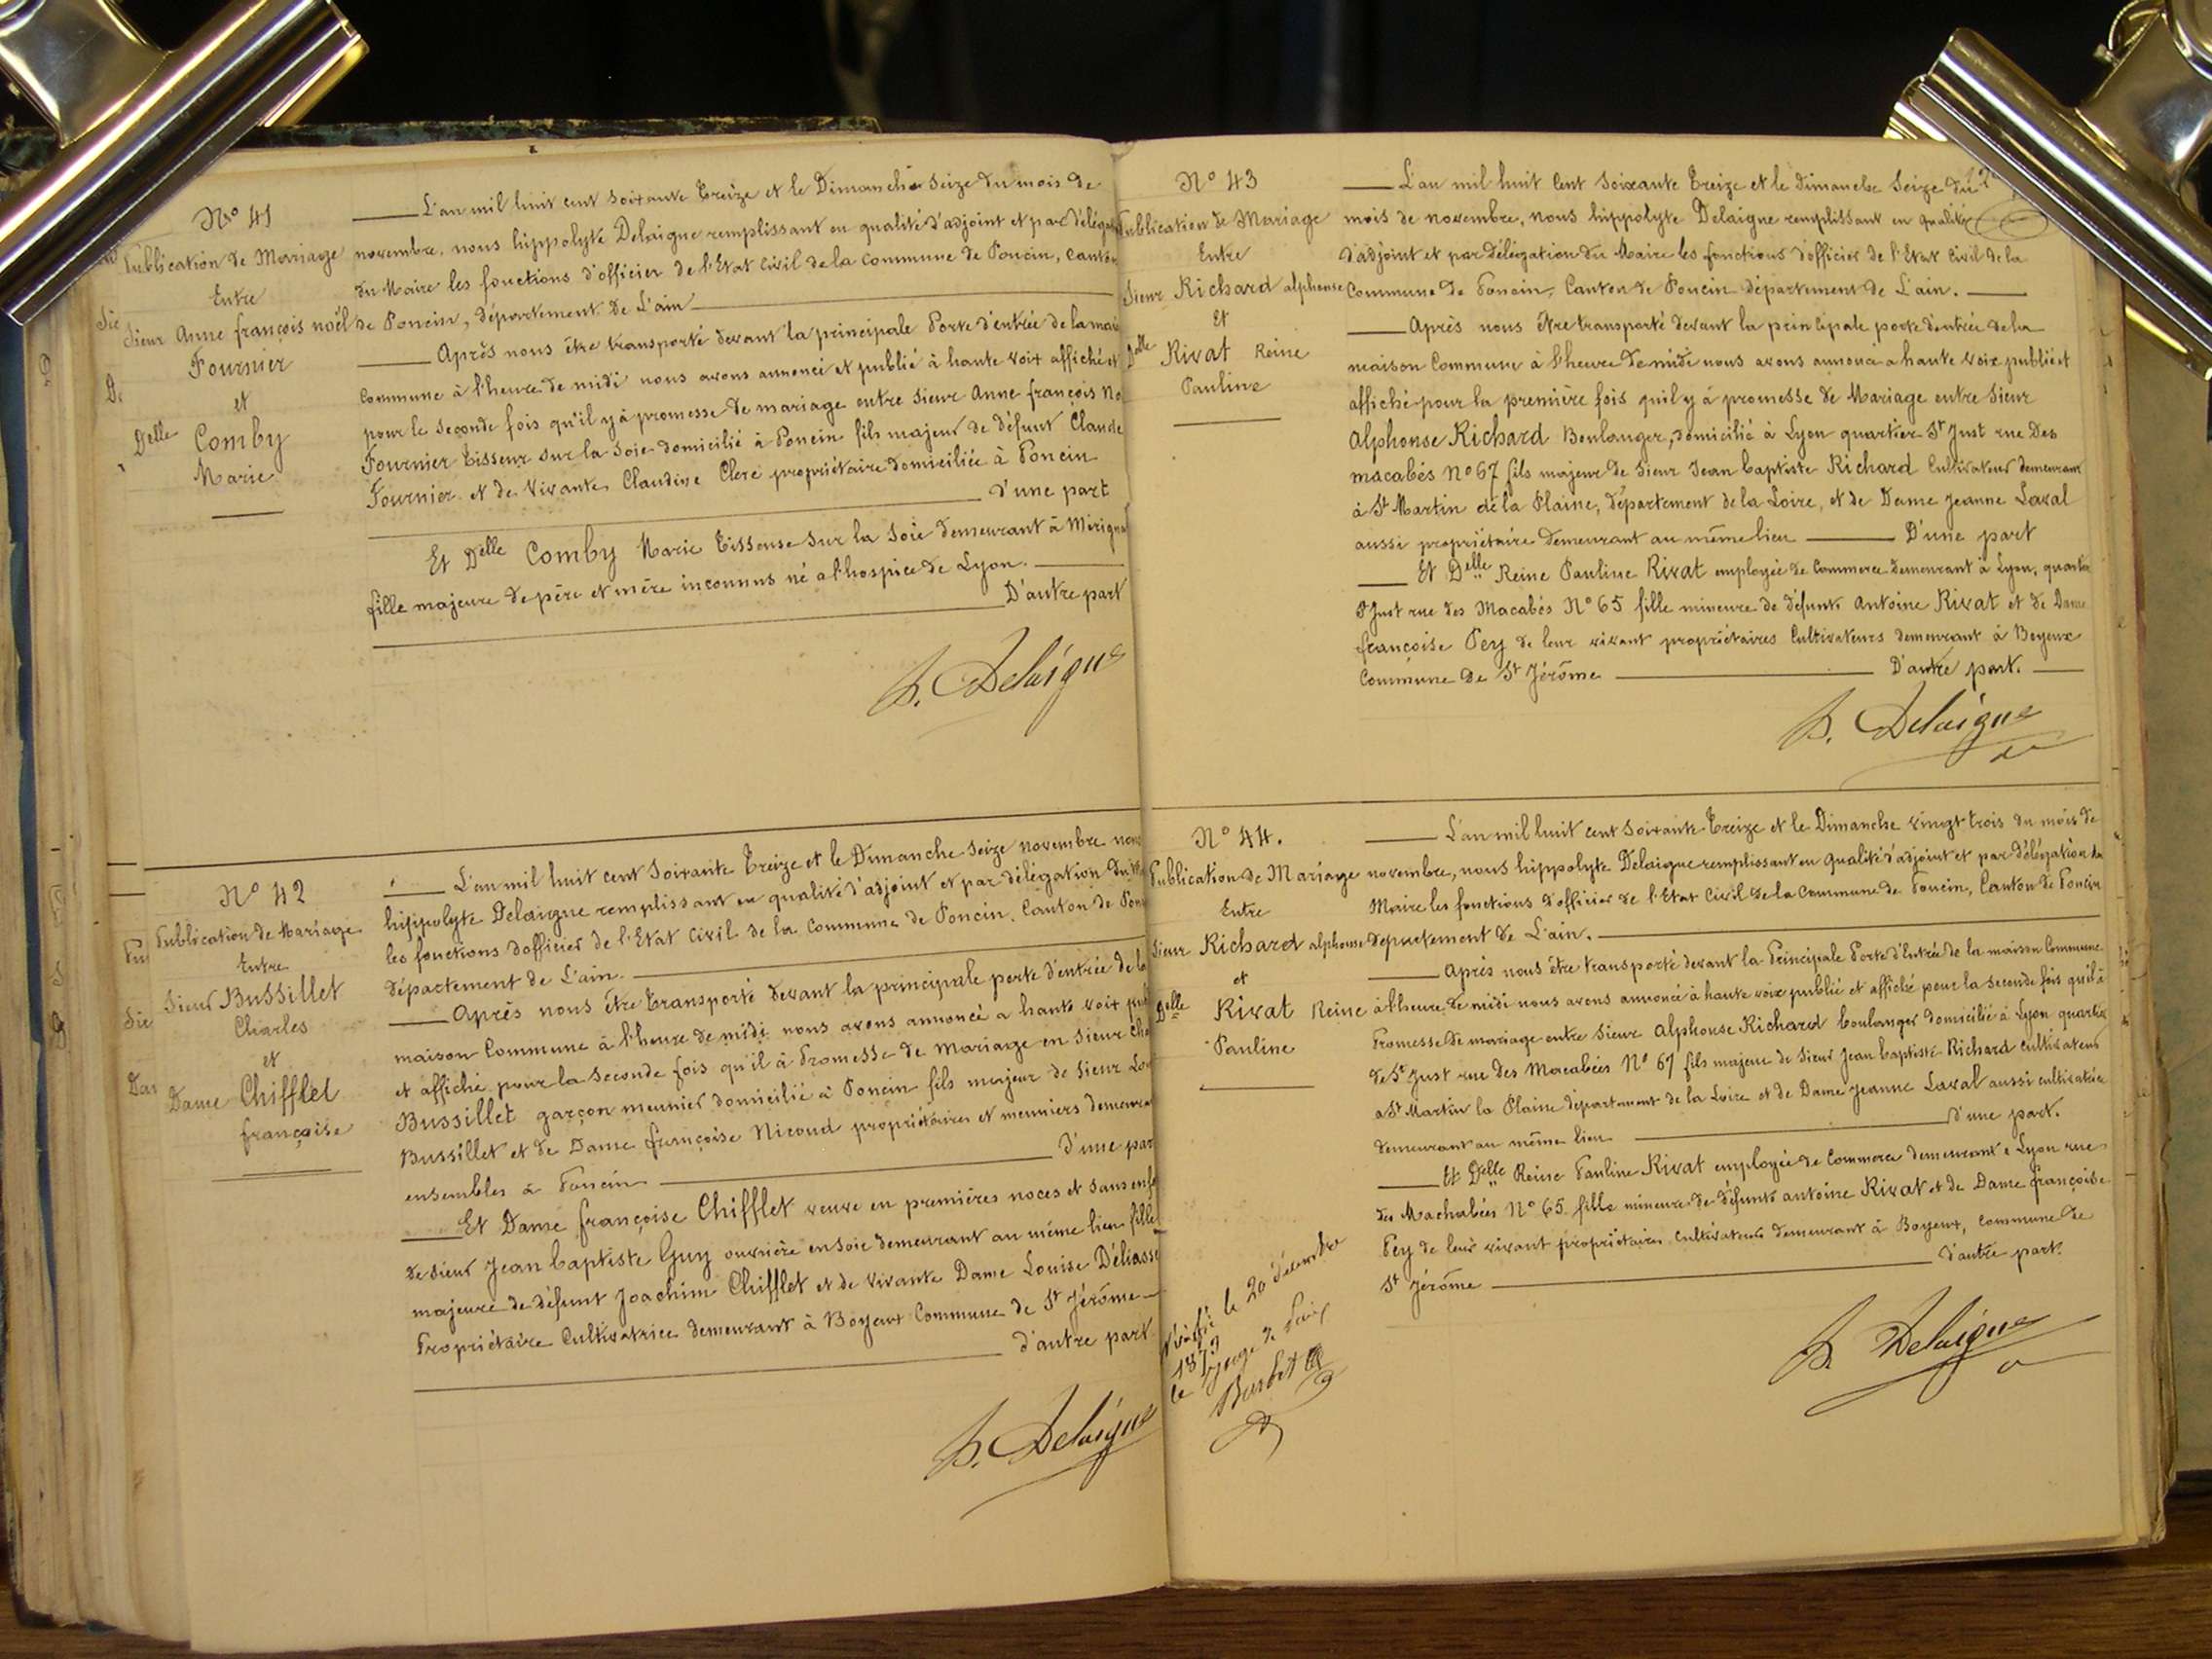 N° 41
Publication de Mariage
Entre
Sieur Anne françois noël
Fournier
et
Delle Comby
Marie
L'an mil huit cent soixante treize et le Dimanche seize du mois de
novembre, nous hippolyte Delaigne remplissant en qualité d'adjoint et par
du Maire les fonctions d'officier de l'Etat Civil de la Commune de Poncin, Canton
de Poncin, département de L'ain
Après nous être transporté devant la principale Porte d'entrée de la
Commune à l'heure de midi nous avons annoncé et publié à haute voix affiché et
pour la seconde fois qu'il y à promesse de mariage entre sieur Anne françois
Fournier tisseur sur la soie domicilié à Poncin fils majeur de défunt Claude
Fournier et de vivante Claudine Clere propriétaire domiciliée à Poncin
d'une part
Et Delle Comby Marie tisseuse sur la soie demeurant à
fille majeure de père et mère inconnus né a l'hospice de Lyon.
D'autre part
h. Delaigne
N° 42
Publication de Mariage
Entre
Sieur Bussillet
Charles
et
Dame Chifflet
françoise
L'an mil huit cent soixante treize et le Dimanche seize novembre nous
hippolyte Delaigne remplissant en qualité d'adjoint et par délégation du
les fonctions d'officier de l'Etat Civil de la Commune de Poncin, Canton de
département de L'ain.
Après nous être transporté devant la principale porte d'entrée de la
maison Commune à l'heure de midi nous avons annoncé a haute voix
et affiché pour la seconde fois qu'il à Promesse de Mariage en sieur
Bussillet garçon meunier domicilié à Poncin fils majeur de sieur
Bussillet et de Dame françoise Nicoud propriétaires et meuniers
ensembles à Poncin d'une part
Et Dame françoise Chifflet veuve en premières noces et sans
de sieur Jean baptiste Guy ouvrière en soie demeurant au même lieu fille
majeure de défunt Joachim Chifflet et de vivante Dame Louise
Propriétaire Cultivatrice demeurant à Boyeux Commune de St Jérôme
d'autre part
h. Delaigne
N° 43
Publication de Mariage
Entre
Sieur Richard alphonse
Et
Delle Rivat Reine
Pauline
L'an mil huit Cent soixante treize et le dimanche seize du
mois de novembre, nous hippolyte Delaigne remplissant en qualité
d'adjoint et par délégation du Maire les fonctions d'officier de l'Etat Civil de la
Commune de Poncin, Canton de Poncin département de L'ain.
Après nous être transporté devant la principale porte d'entrée de la
maison Commune à l'heure de midi nous avons annoncé a haute voix publié et
affiché pour la première fois quil y à promesse de Mariage entre Sieur
Alphonse Richard Boulanger, domicilié à Lyon quartier St Just rue Des
macabés N° 67 fils majeur de Sieur Jean baptiste Richard Cultivateur demeurant
à St Martin de la Plaine, département de la Loire, et de Dame Jeanne Laval
aussi propriétaire demeurant au même lieu D'une part
Et Delle Reine Pauline Rivat employée de Commerce demeurant à Lyon, quartier
St Just rue des Macabés N° 65 fille mineure de défunt Antoine Rivat et de Dame
françoise Pey de leur vivant propriétaires Cultivateurs demeurant à Boyeux
Commune de St Jérôme D'autre part.
h. Delaigne
N° 44.
Publication de Mariage
Entre
Sieur Richard alphonse
et
Delle Rivat Reine
Pauline
L'an mil huit cent soixante treize et le Dimanche vingt trois du mois de
novembre, nous hippolyte Delaigne remplissant en qualité d'adjoint et par délégation du
Maire les fonctions d'officier de l'Etat Civil de la Commune de Poncin, Canton de Poncin
département de L'ain.
Après nous être transporté devant la Principale Porte d'Entrée de la maison Commune
à l'heure de midi nous avons annoncé à haute voix publié et affiché pour la seconde fois qu'il à
Promesse de mariage entre sieur Alphonse Richard boulanger domicilié à Lyon quartier
de St Just rue des Macabées N° 67 fils majeur de sieur Jean baptiste Richard cultivateur
a St Martin la Plaine département de la Loire et de Dame Jeanne Laval aussi cultivatrice
demeurant au même lieu d'une part.
Et Delle Reine Pauline Rivat employée de Commerce demeurant à Lyon rue
des Machabées N° 65 fille mineure de défunt antoine Rivat et de Dame françoise
Pey de leur vivant propriétaires cultivateurs demeurant à Boyeux, Commune de
St Jérôme d'autre part.
h. Delaigne
Vérifié le 20 décembre
1873
le Juge de Paix